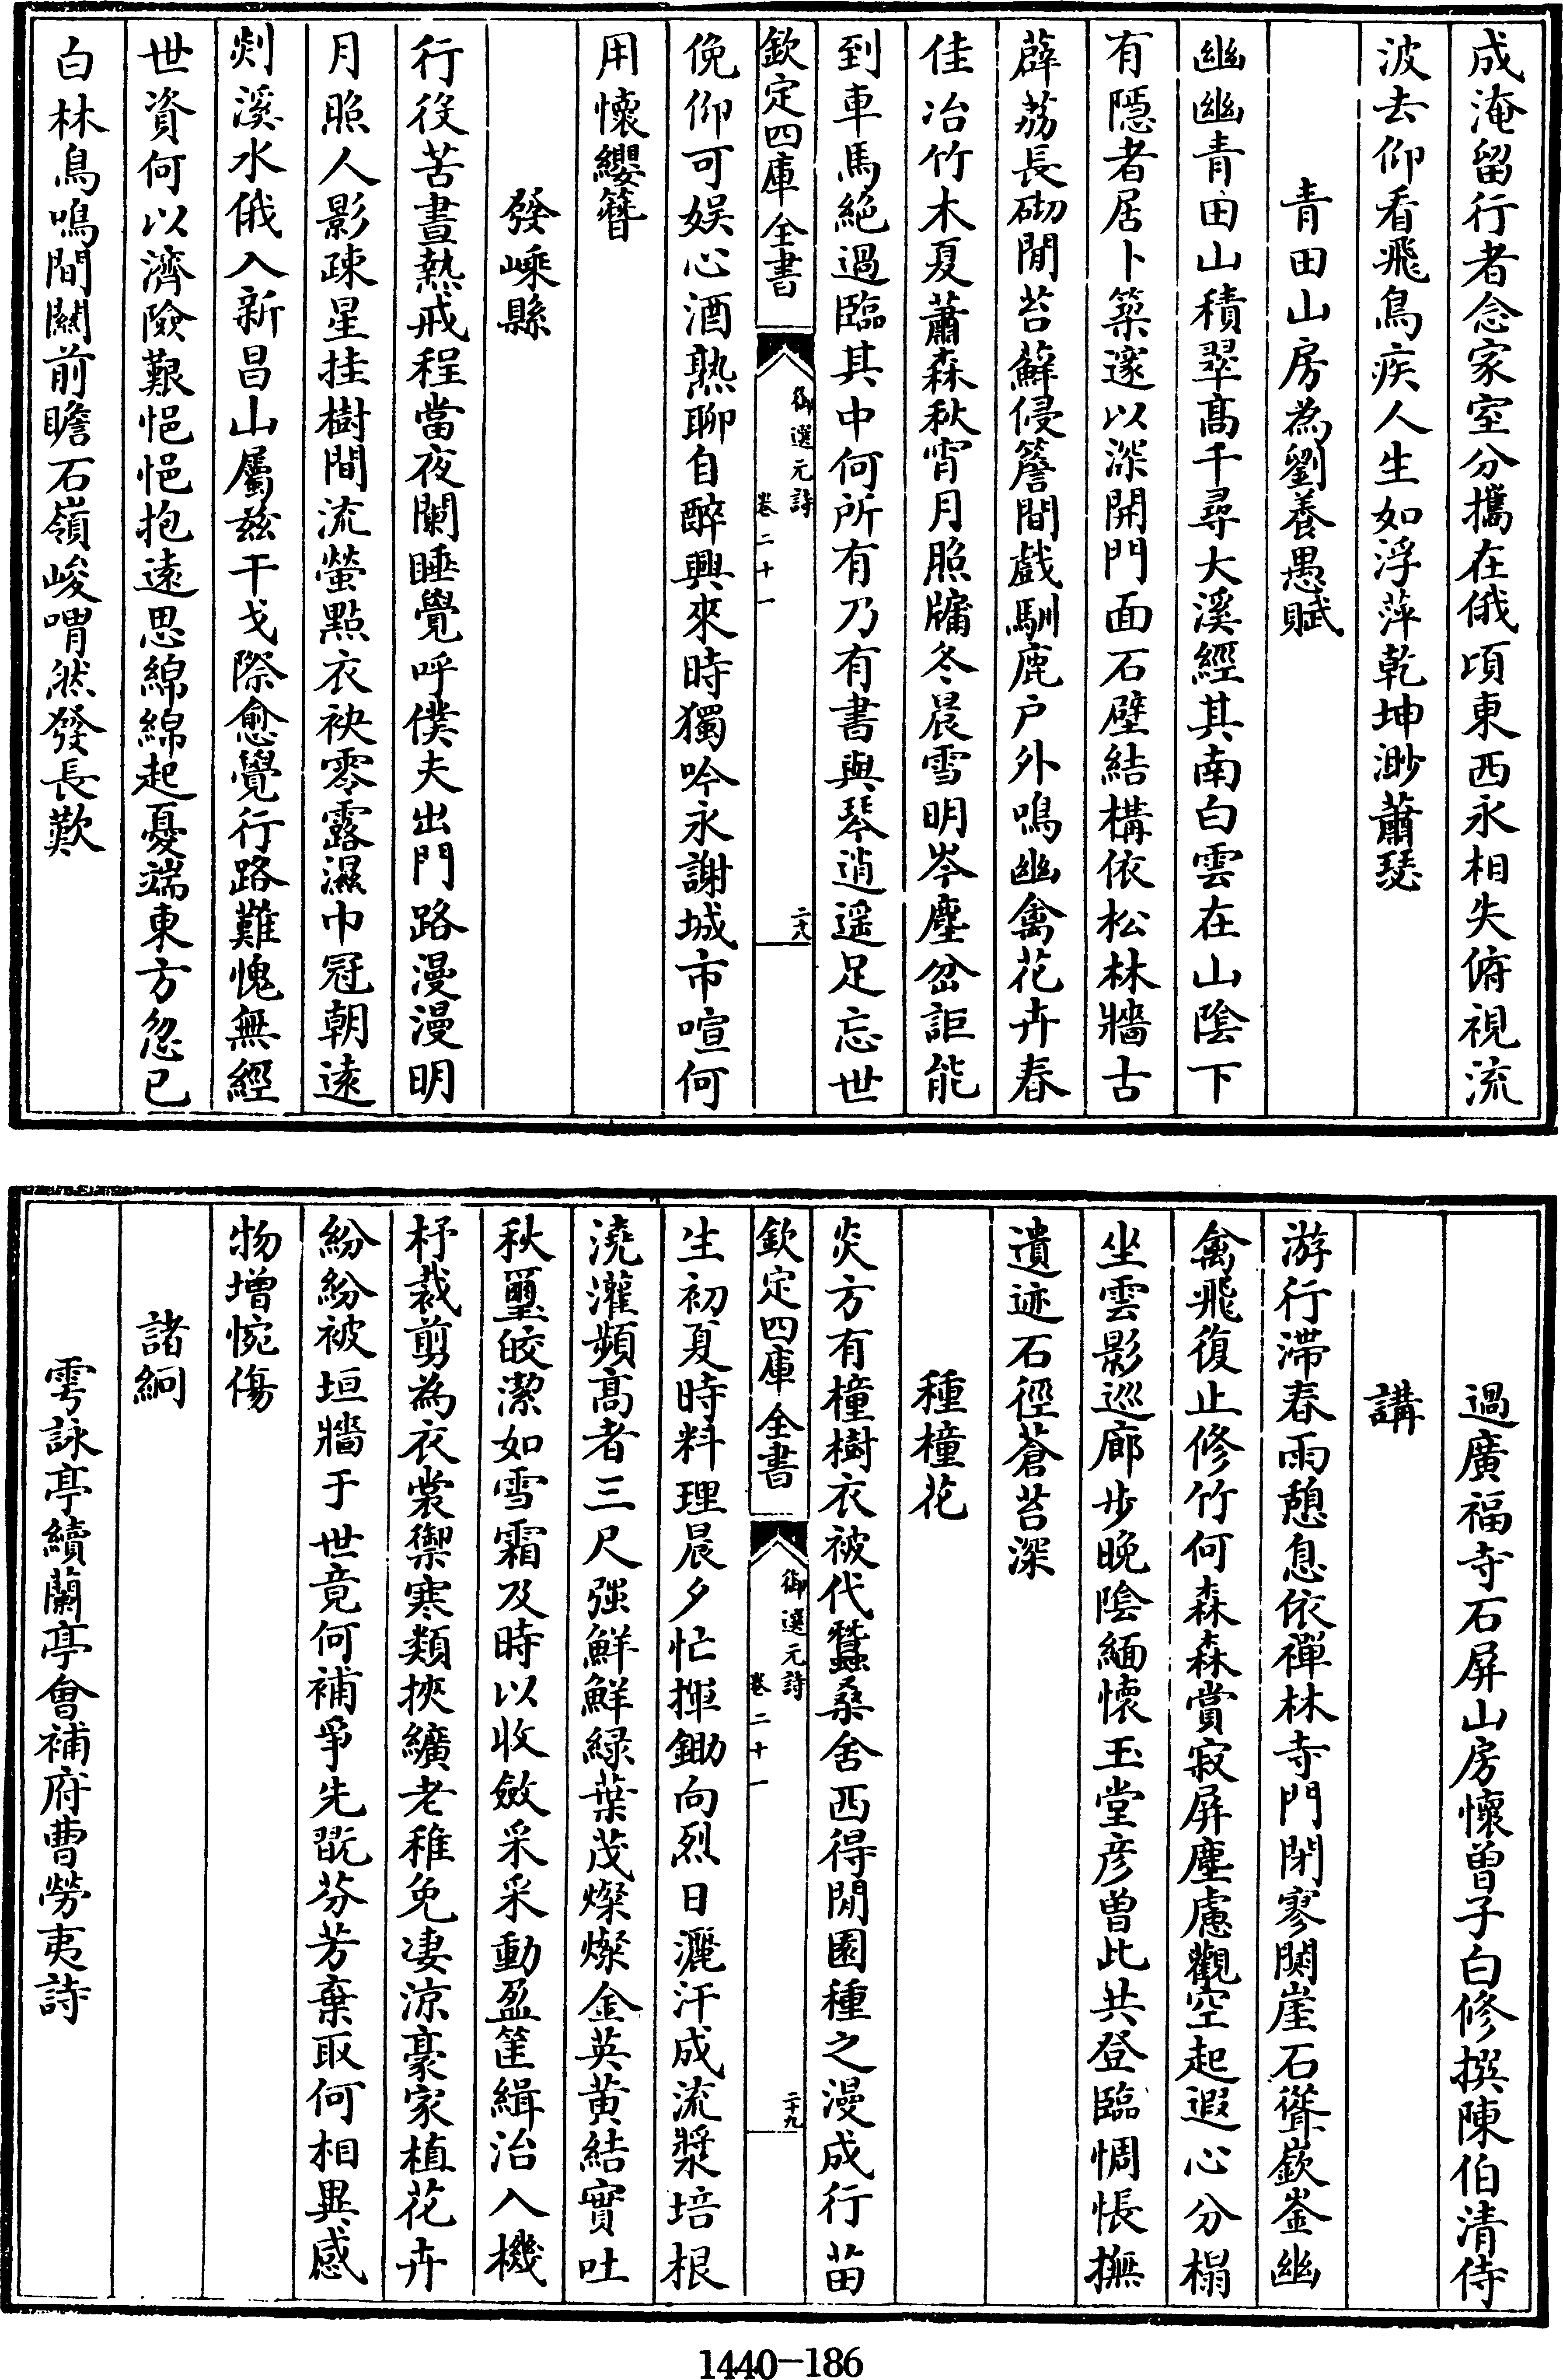 成淹留行者念家室分攜在俄頃東西永相失俯視流
波去仰看飛鳥疾人生如浮萍乾坤渺蕭瑟
青田山房為劉養愚賦
幽幽青田山積翠髙千尋大溪經其南白雲在山隂下
有隱者居卜築邃以深開門面石壁結構依松林牆古
薜荔長砌閒苔蘚侵簷間戲馴鹿户外鳴幽禽花卉春
佳冶竹木夏蕭森秋宵月照牗冬晨雪明岑塵岔詎能
到車馬絶過臨其中何所有乃有書與琴逍遥足忘世
欽定四庫全書
御選元詩
卷二十一
二十八
俛仰可娱心酒熟聊自醉興來時獨吟永謝城市喧何
用懷纓簪
發嵊縣
行役苦晝熱戒程當夜闌睡覺呼僕夫出門路漫漫明
月照人影疎星挂樹間流螢點衣袂零露濕巾冠朝遠
剡溪水俄入新昌山屬兹干戈際愈覺行路難愧無經
世資何以濟險艱悒悒抱遠思綿綿起憂端東方忽已
白林鳥鳴間關前瞻石嶺峻喟然發長歎
過廣福寺石屏山房懷曽子白修撰陳伯清侍
講
游行滯春雨憩息依禪林寺門閉寥闃崖石聳嶔崟幽
禽飛復止修竹何森森賞寂屏塵慮觀空起遐心分榻
坐雲影巡廊步晚隂緬懷玉堂彦曽此共登臨惆悵撫
遺迹石徑蒼苔深
種橦花
炎方有橦樹衣被代蠶桑舍西得閒園種之漫成行苗
欽定四庫全書
御選元詩
卷二十一
二十九
生初夏時料理晨夕忙揮鋤向烈日灑汗成流漿培根
澆灌頻髙者三尺强鮮鮮緑葉茂燦燦金英黄結實吐
秋璽皎潔如雪霜及時以收斂采采動盈筐緝治入機
杼裁剪為衣裳禦寒類挾纊老稚免凄涼豪家植花卉
紛紛被垣牆于世竟何補爭先翫芬芳棄取何相異感
物增惋傷
諸絅
雩詠亭續蘭亭會補府曹勞夷詩
1440—186